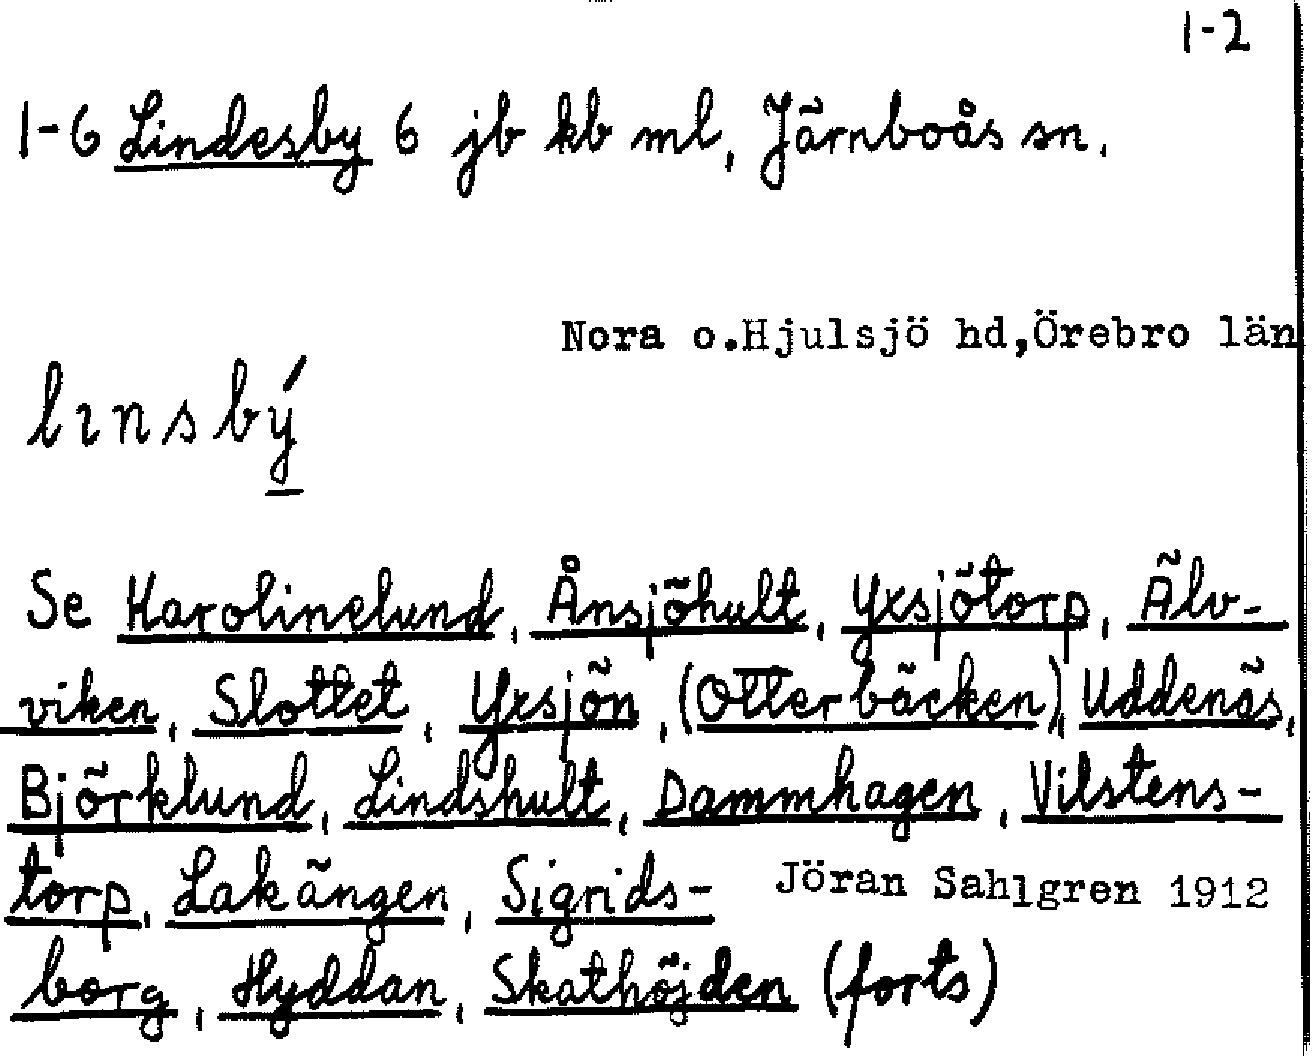 1-2
1-6 Lindesby 6 jb kb ml, Järnboås sn.
Nora o.Hjulsjö hd,Örebro län
lınsbý
Se Karolinelund, Ånsjöhult, Yxsjötorp, Älv-
viken, Slottet, Yxsjön, (Otterbäcken), Uddenäs,
Björklund, Lindshult, Dammhagen, Vilstens-
torp, Lakängen, Sigrids-
Jöran Sahlgren 1912
borg, Hyddan, Skathöjden (forts)